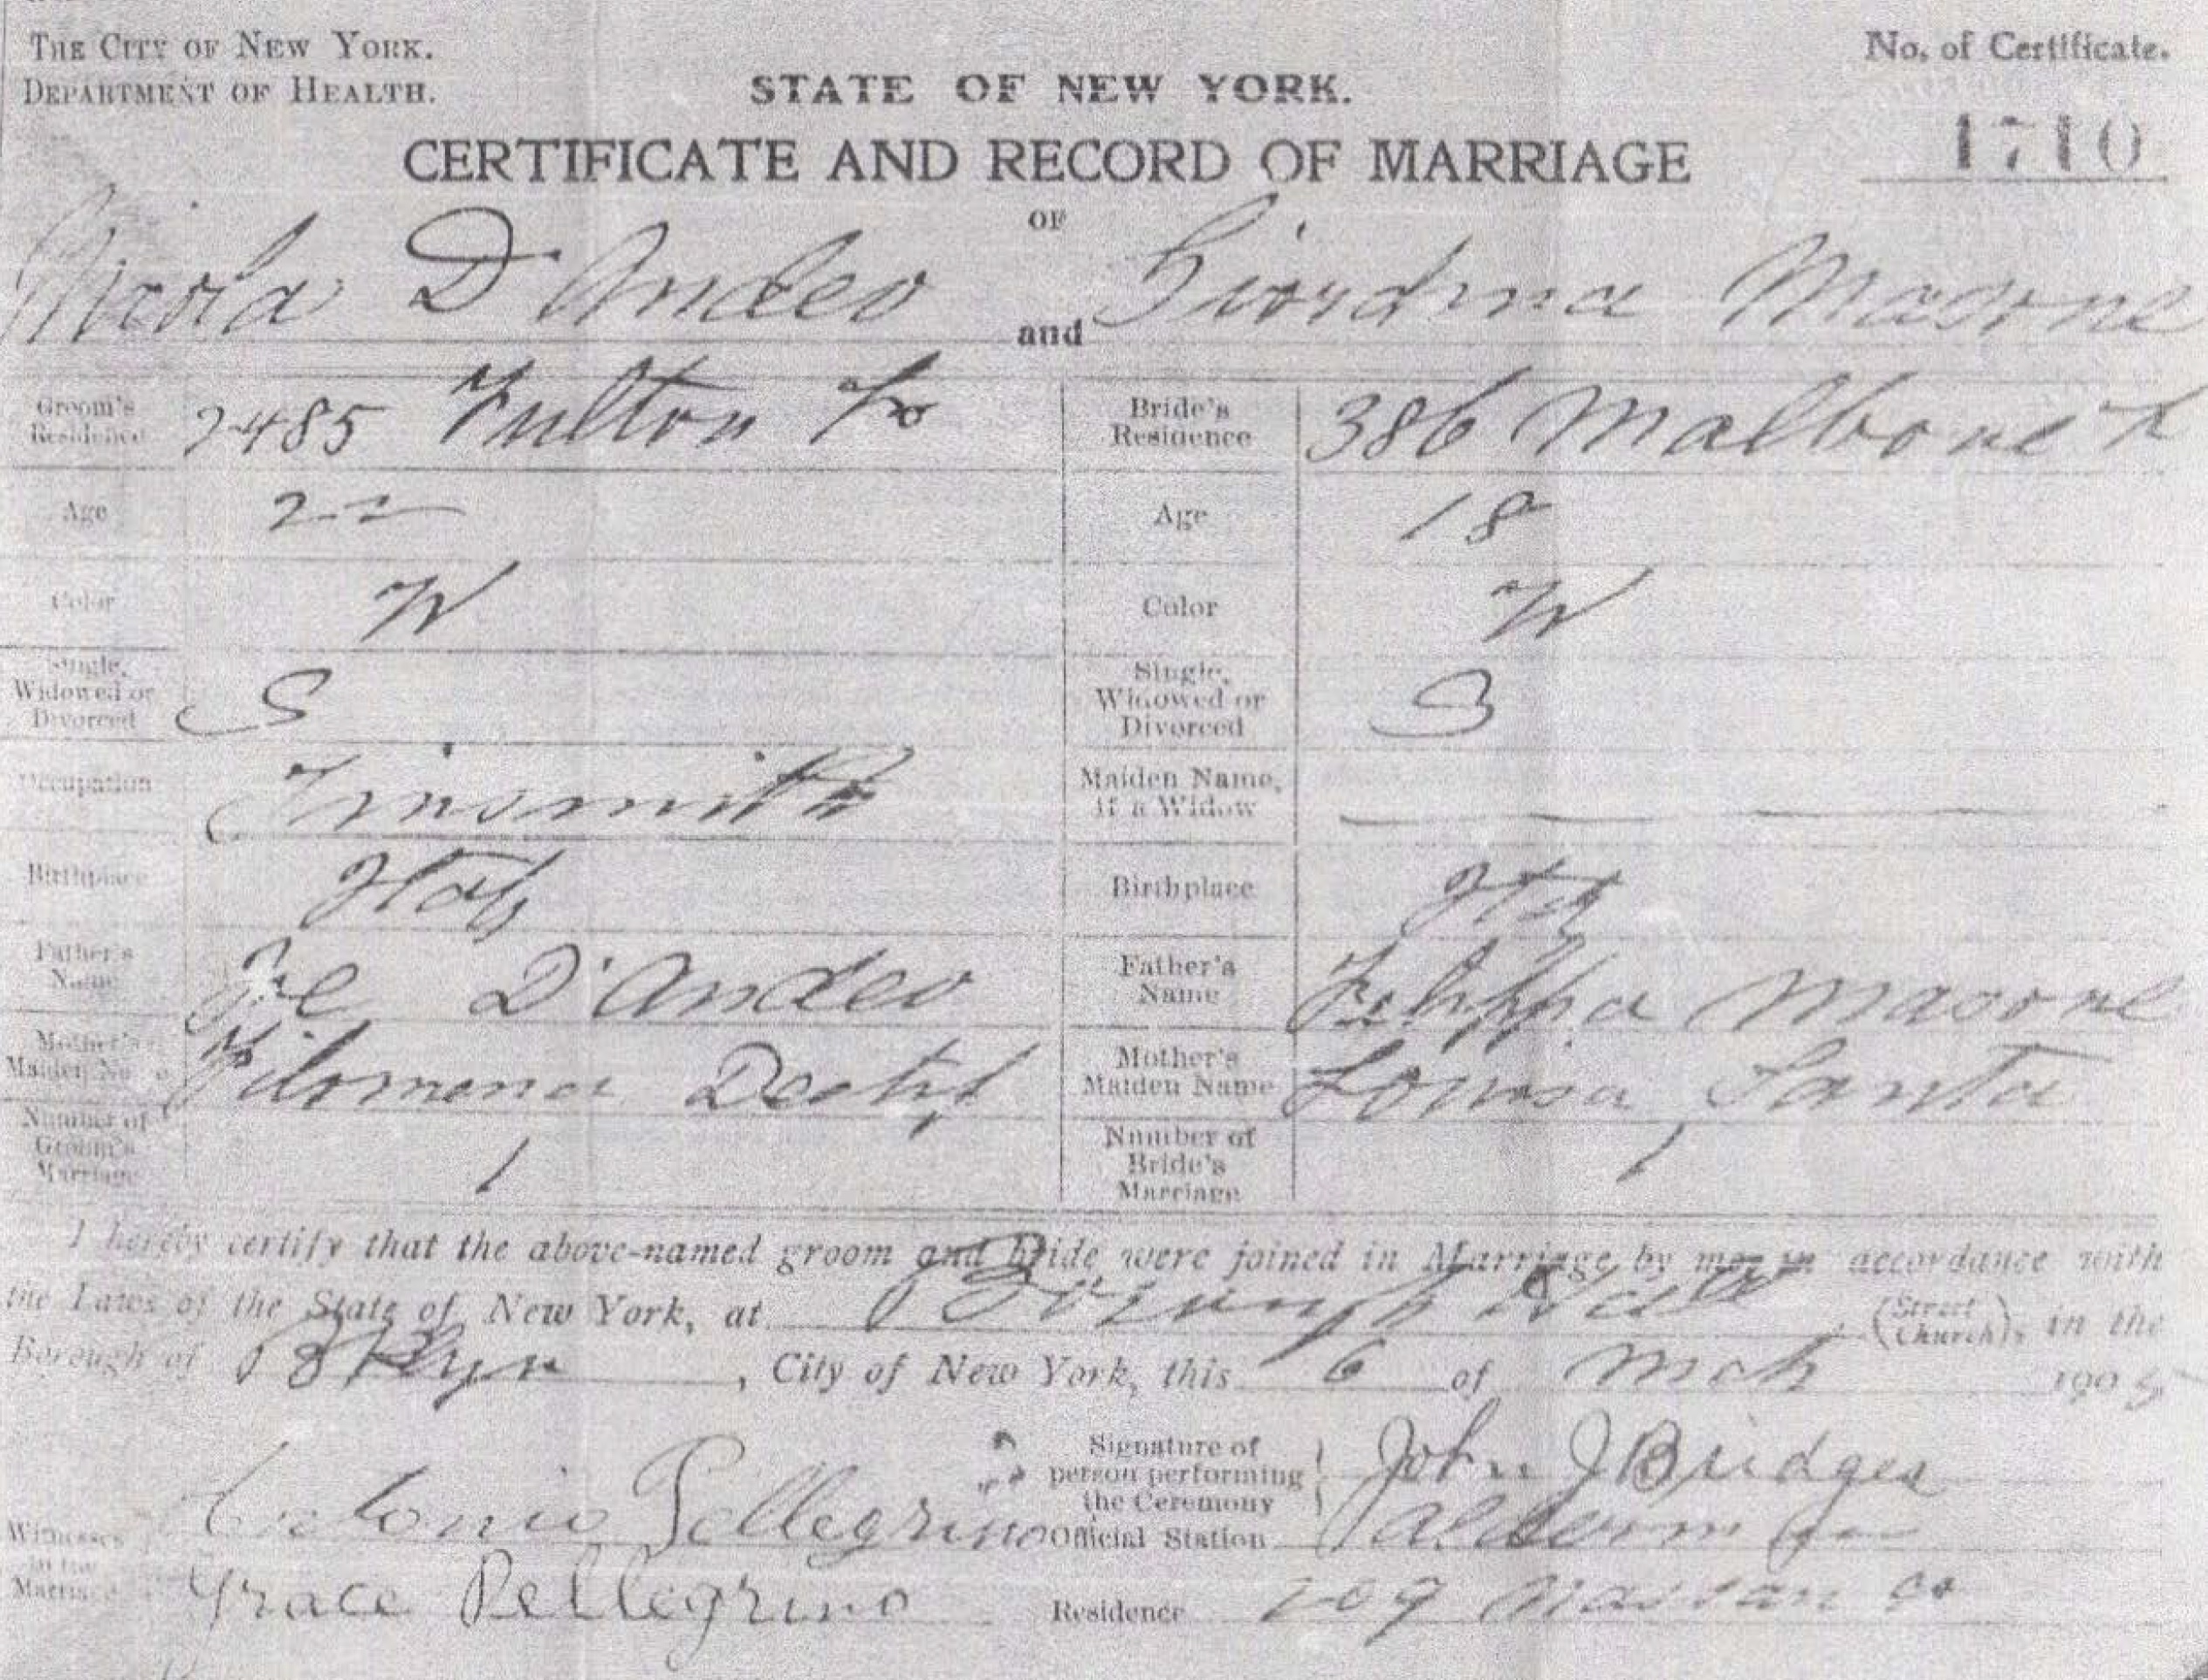 THE CITY OF NEW YORK.
DEPARTMENT OF HEALTH.
No. of Certificate.
STATE OF NEW YORK.
1710
CERTIFICATE AND RECORD OF MARRIAGE
OF
Nicola D'Andeo and Giordina Masone
Groom's Residence 2485 Fulton St Bride's Residence 386 Malbone St
Age 22 Age 18
Color W Color W
Single, Widowed or Divorced S Single, Widowed or Divorced S
Occupation Tinsmith Maiden Name, if a Widow
Birthplace Italy Birthplace Italy
Father's Name D'Andeo Father's Name Masone
Mother's Maiden Name Filomena Mother's Maiden Name Louisa Santa
Number of Groom's Marriage 1 Number of Bride's Marriage 1
I hereby certify that the above-named groom and bride were joined in Marriage by me in accordance with
the Laws of the State of New York, at Borough Hall (Street Church), in the
Borough of Bklyn, City of New York, this 6 of Mch 1905
Signature of person performing the Ceremony John J Bridges
Witnesses to the Marriage Antonio Pellegrino Official Station Alderman
Grace Pellegrino Residence 209 Nassau St